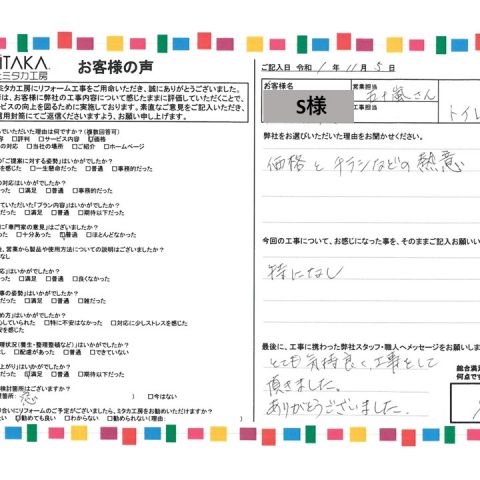 iTAKA
ミタカ工房
お客様の声
ミタカ工房にリフォーム工事をご用命いただき、誠にありがとうございました。
は、お客様に弊社の工事内容について感じたままに評価していただくことで、
ビスの向上を図るために実施しております。率直なご意見をご記入いただき、
信用封筒にてご返信いただきますよう、お願い申し上げます。
いただいた理由は何ですか?(複数回答可)
内容 □評判 □サービス内容 □価格
の対応 □当社の場所 □ご紹介 □ホームページ
「ご提案に対する姿勢」はいかがでしたか?
を感じた □一生懸命だった □普通 □事務的だった
の対応はいかがでしたか?
った □満足 □普通 □事務的だった
ていただいた「プラン内容」はいかがでしたか?
だった □満足 □普通 □期待以下だった
に「専門家の意見」はございましたか?
った □十分あった □普通 □ほとんどなかった
、営業から製品や使用方法についての説明はございましたか?
なし
応」はいかがでしたか?
だった □満足 □普通 □良くなかった
事の姿勢」はいかがでしたか?
を感じた □満足だった □普通 □雑だった
め方」はいかがでしたか?
していられた □特に不安はなかった □対応に少しストレスを感じた
を感じた
理状況(養生・整理整頓など)」はいかがでしたか?
なし □配慮があった □できていない
上がり」はいかがでしたか?
だった □満足 □普通 □期待以下だった
検討箇所はございますか?
箇所: 窓 ) □今はない
合いにリフォームのご予定がございましたら、ミタカ工房をお勧めいただけますか?
□勧めても良い □わからない □勧めない(理由: )
ご記入日 令和 1 年 11 月 5 日
お客様名
S様
営業担当
五十嵐さん
工事担当
トイレ
弊社をお選びいただいた理由をお聞かせください。
価格と チラシなどの熱意
今回の工事について、お感じになった事を、そのままご記入お願いい
特になし
最後に、工事に携わった弊社スタッフ・職人へメッセージをお願いしま
とても気持良く、工事をして
頂きました。
ありがとうございました。
総合満足
何点です